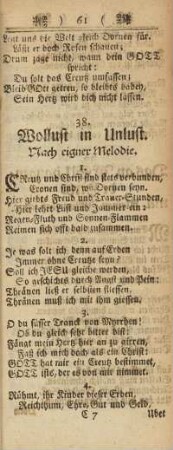 ( 61 )
Legt uns die Welt gleich Dornen für.
Läßt er doch Rosen schauen;
Drum zage nicht, wann dein GOTT
spricht:
Du solt das Creutz umfassen;
Bleib GOtt getreu, so bleibts dabey,
Sein Hertz wird dich nicht lassen.
38.
Wollust in Unlust.
Nach eigner Melodie.
1.
CReutz und Christ sind stets verbunden,
Cronen sind, wo Dornen seyn.
Hier giebts Freud und Trauer-Stunden,
Hier kehrt Lust und Jammer ein:
Regen-Fluth und Sonnen-Flammen
Reimen sich offt bald zusammen.
2.
Je was solt ich denn auf Erden
Immer ohne Creutze seyn?
Soll ich JESU gleiche werden,
So geschichts durch Angst und Pein:
Thränen ließ er selbsten fliessen,
Thränen muß ich mit ihm giessen.
3.
O du süsser Tranck von Myrrhen!
Ob du gleich sehr bitter bist:
Fängt mein Hertz hier an zu
Faß ich mich doch als ein Christ:
GOTT hat mir ein Creutz bestimmet,
GOTT ists, der es von mir nimmet.
4.
Rühmt, ihr Kinder dieser Erden,
Reichthum, Ehre, Gut und Geld,
C 7